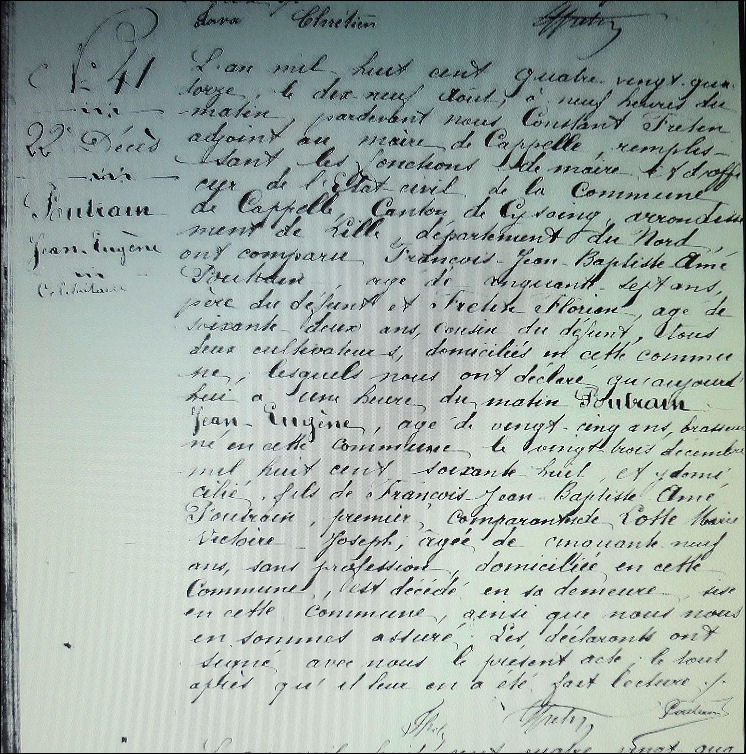 Chrétien
N° 41
22e Décès
Poutrain
Jean-Eugène
Célibataire
L'an mil huit cent quatre-vingt-qua-
torze, le dix-neuf Août, à neuf heures du
matin, pardevant nous Constant Fretin
adjoint au maire de Cappelle, remplis-
sant les fonctions de maire et d'offi
cier de l'Etat civil de la Commune
de Cappelle, Canton de Cysoing, arrondisse
ment de Lille, département du Nord,
ont comparu François-Jean-Baptiste-Amé
Poutrain, agé de cinquante-sept ans,
père du défunt et Fretin Florian, agé de
soixante-deux ans, cousin du défunt, tous
deux cultivateurs, domiciliés en cette commu
ne, lesquels nous ont déclaré qu'aujourd'
hui à une heure du matin Poutrain
Jean-Eugène, agé de vingt-cinq ans, brasseur
né en cette commune le vingt-trois décembre
mil huit cent soixante-huit et y domi
cilié, fils de François-Jean-Baptiste Amé
Poutrain, premier comparant et de Lotte Marie
Victoire-Joseph, âgée de cinquante-neuf
ans, sans profession, domiciliée en cette
Commune, est décédé en sa demeure, sise
en cette commune, ainsi que nous nous
en sommes assuré. Les déclarants ont
signé avec nous le présent acte, le tout
après qu'il leur en a été fait lecture.
Fretin Poutrain